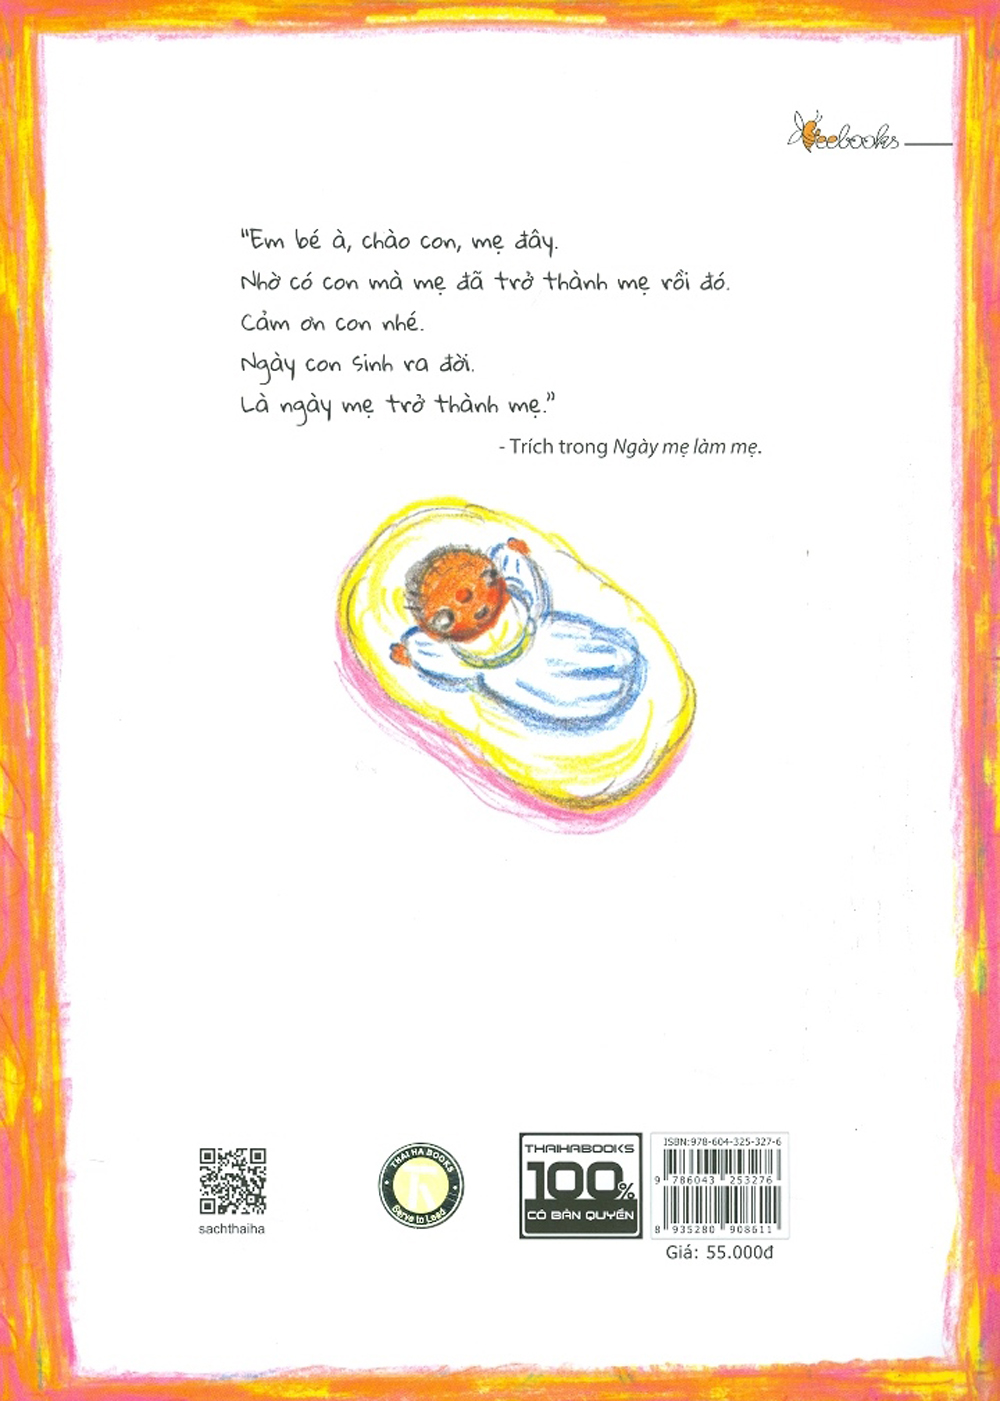 Beebooks
"Em bé à, chào con, mẹ đây.
Nhờ có con mà mẹ đã trở thành mẹ rồi đó.
Cảm ơn con nhé.
Ngày con sinh ra đời.
Là ngày mẹ trở thành mẹ."
- Trích trong Ngày mẹ làm mẹ.
sachthaiha
THAI HA BOOKS
Serve to Lead
THAIHABOOKS
100%
CÓ BẢN QUYỀN
ISBN: 978-604-325-327-6
9 786043 253276
8 935280 908611
Giá: 55.000đ